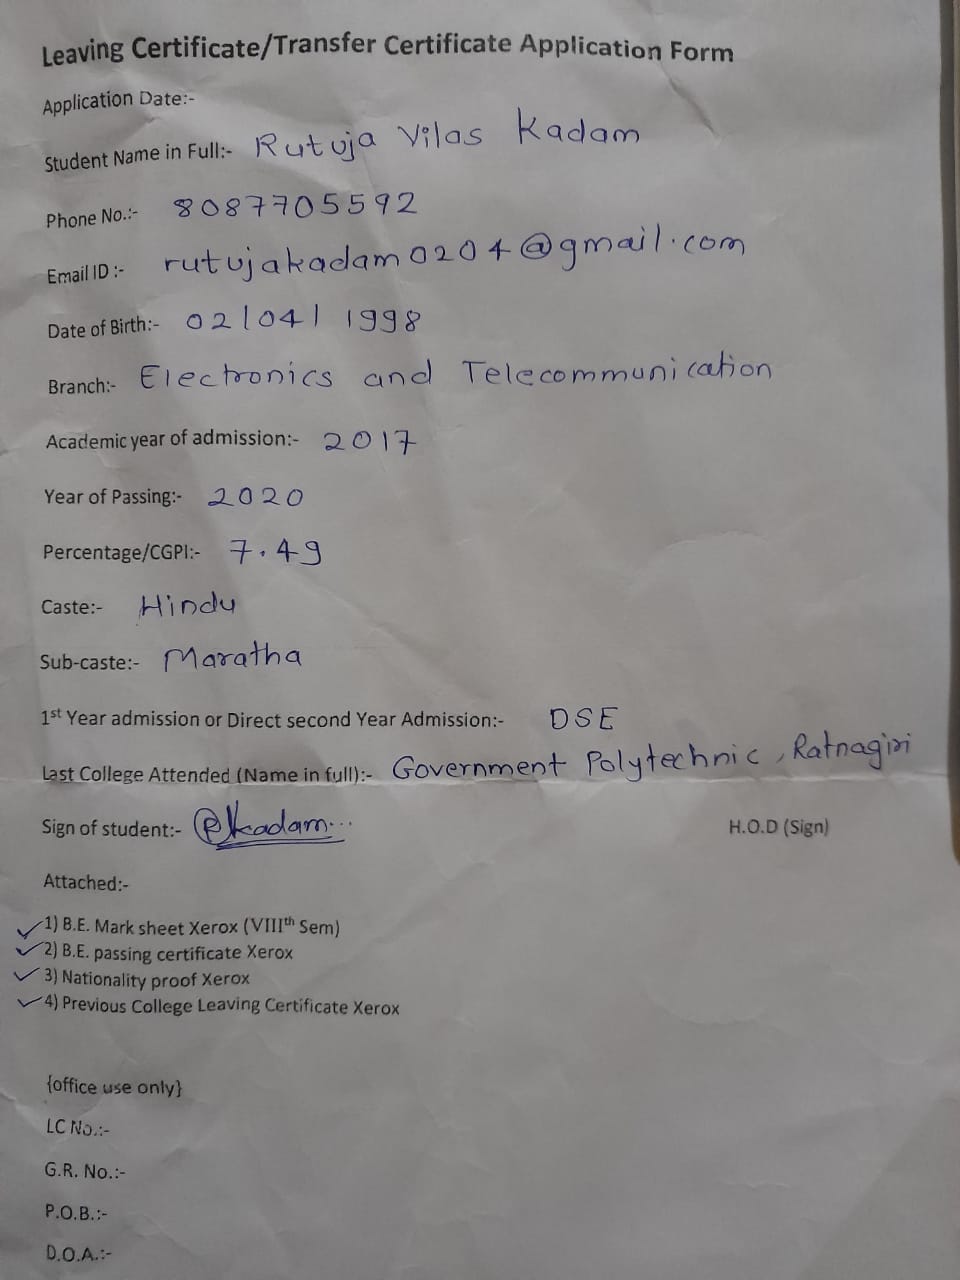 Leaving Certificate/Transfer Certificate Application Form
Application Date:-
Student Name in Full:- Rutuja Vilas Kadam
Phone No.:- 8087705592
Email ID :- rutujakadam0204@gmail.com
Date of Birth:- 02/04/1998
Branch:- Electronics and Telecommunication
Academic year of admission:- 2017
Year of Passing:- 2020
Percentage/CGPI:- 7.49
Caste:- Hindu
Sub-caste:- Maratha
1st Year admission or Direct second Year Admission:- DSE
Last College Attended (Name in full):- Government Polytechnic, Ratnagiri
Sign of student:- Rkadam... H.O.D (Sign)
Attached:-
✓1) B.E. Mark sheet Xerox (VIIIth Sem)
✓2) B.E. passing certificate Xerox
✓3) Nationality proof Xerox
✓4) Previous College Leaving Certificate Xerox
{office use only}
LC No.:-
G.R. No.:-
P.O.B.:-
D.O.A.:-